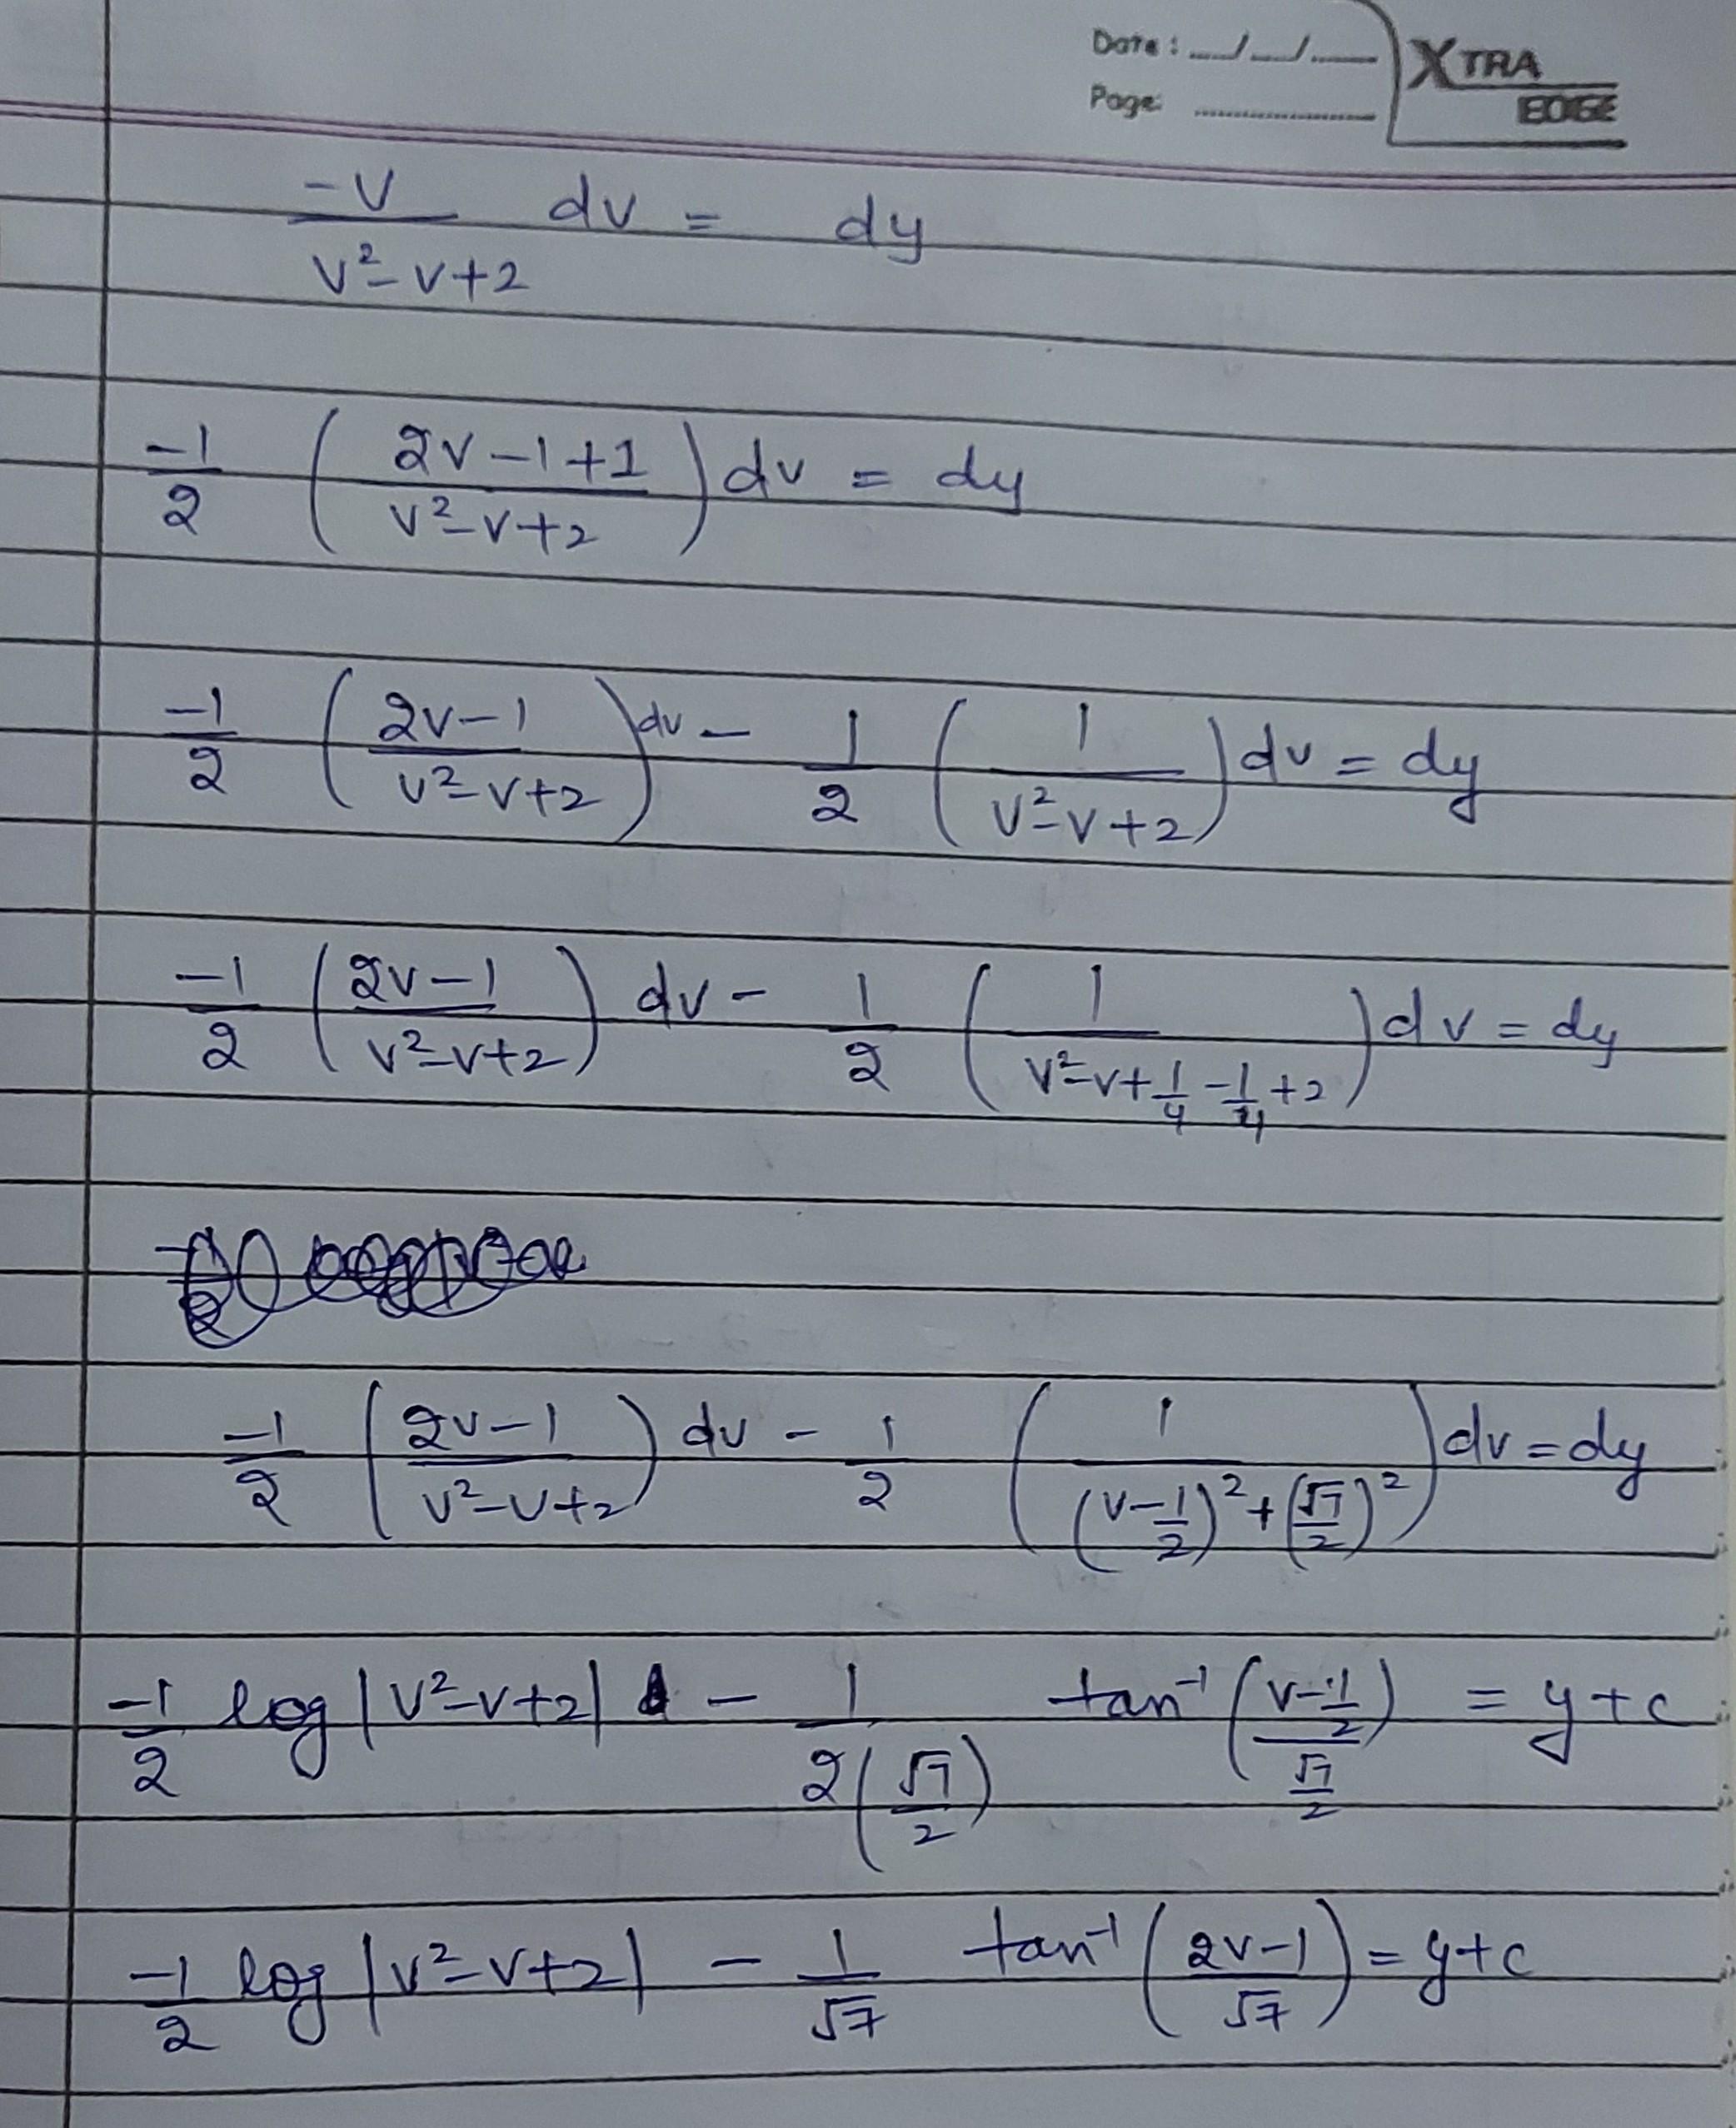 Date : ../../.....
Page: .............
XTRA
EDGE
-v/(v²-v+2) dv = dy
-1/2 ((2v-1+1)/(v²-v+2)) dv = dy
-1/2 ((2v-1)/(v²-v+2)) dv - 1/2 (1/(v²-v+2)) dv = dy
-1/2 ((2v-1)/(v²-v+2)) dv - 1/2 (1/(v²-v+1/4-1/4+2)) dv = dy
-1/2 ((2v-1)/(v²-v+2)) dv - 1/2 (1/((v-1/2)²+(√7/2)²)) dv = dy
-1/2 log|v²-v+2| - 1/(2(√7/2)) tan⁻¹((v-1/2)/(√7/2)) = y+c
-1/2 log|v²-v+2| - 1/√7 tan⁻¹((2v-1)/√7) = y+c